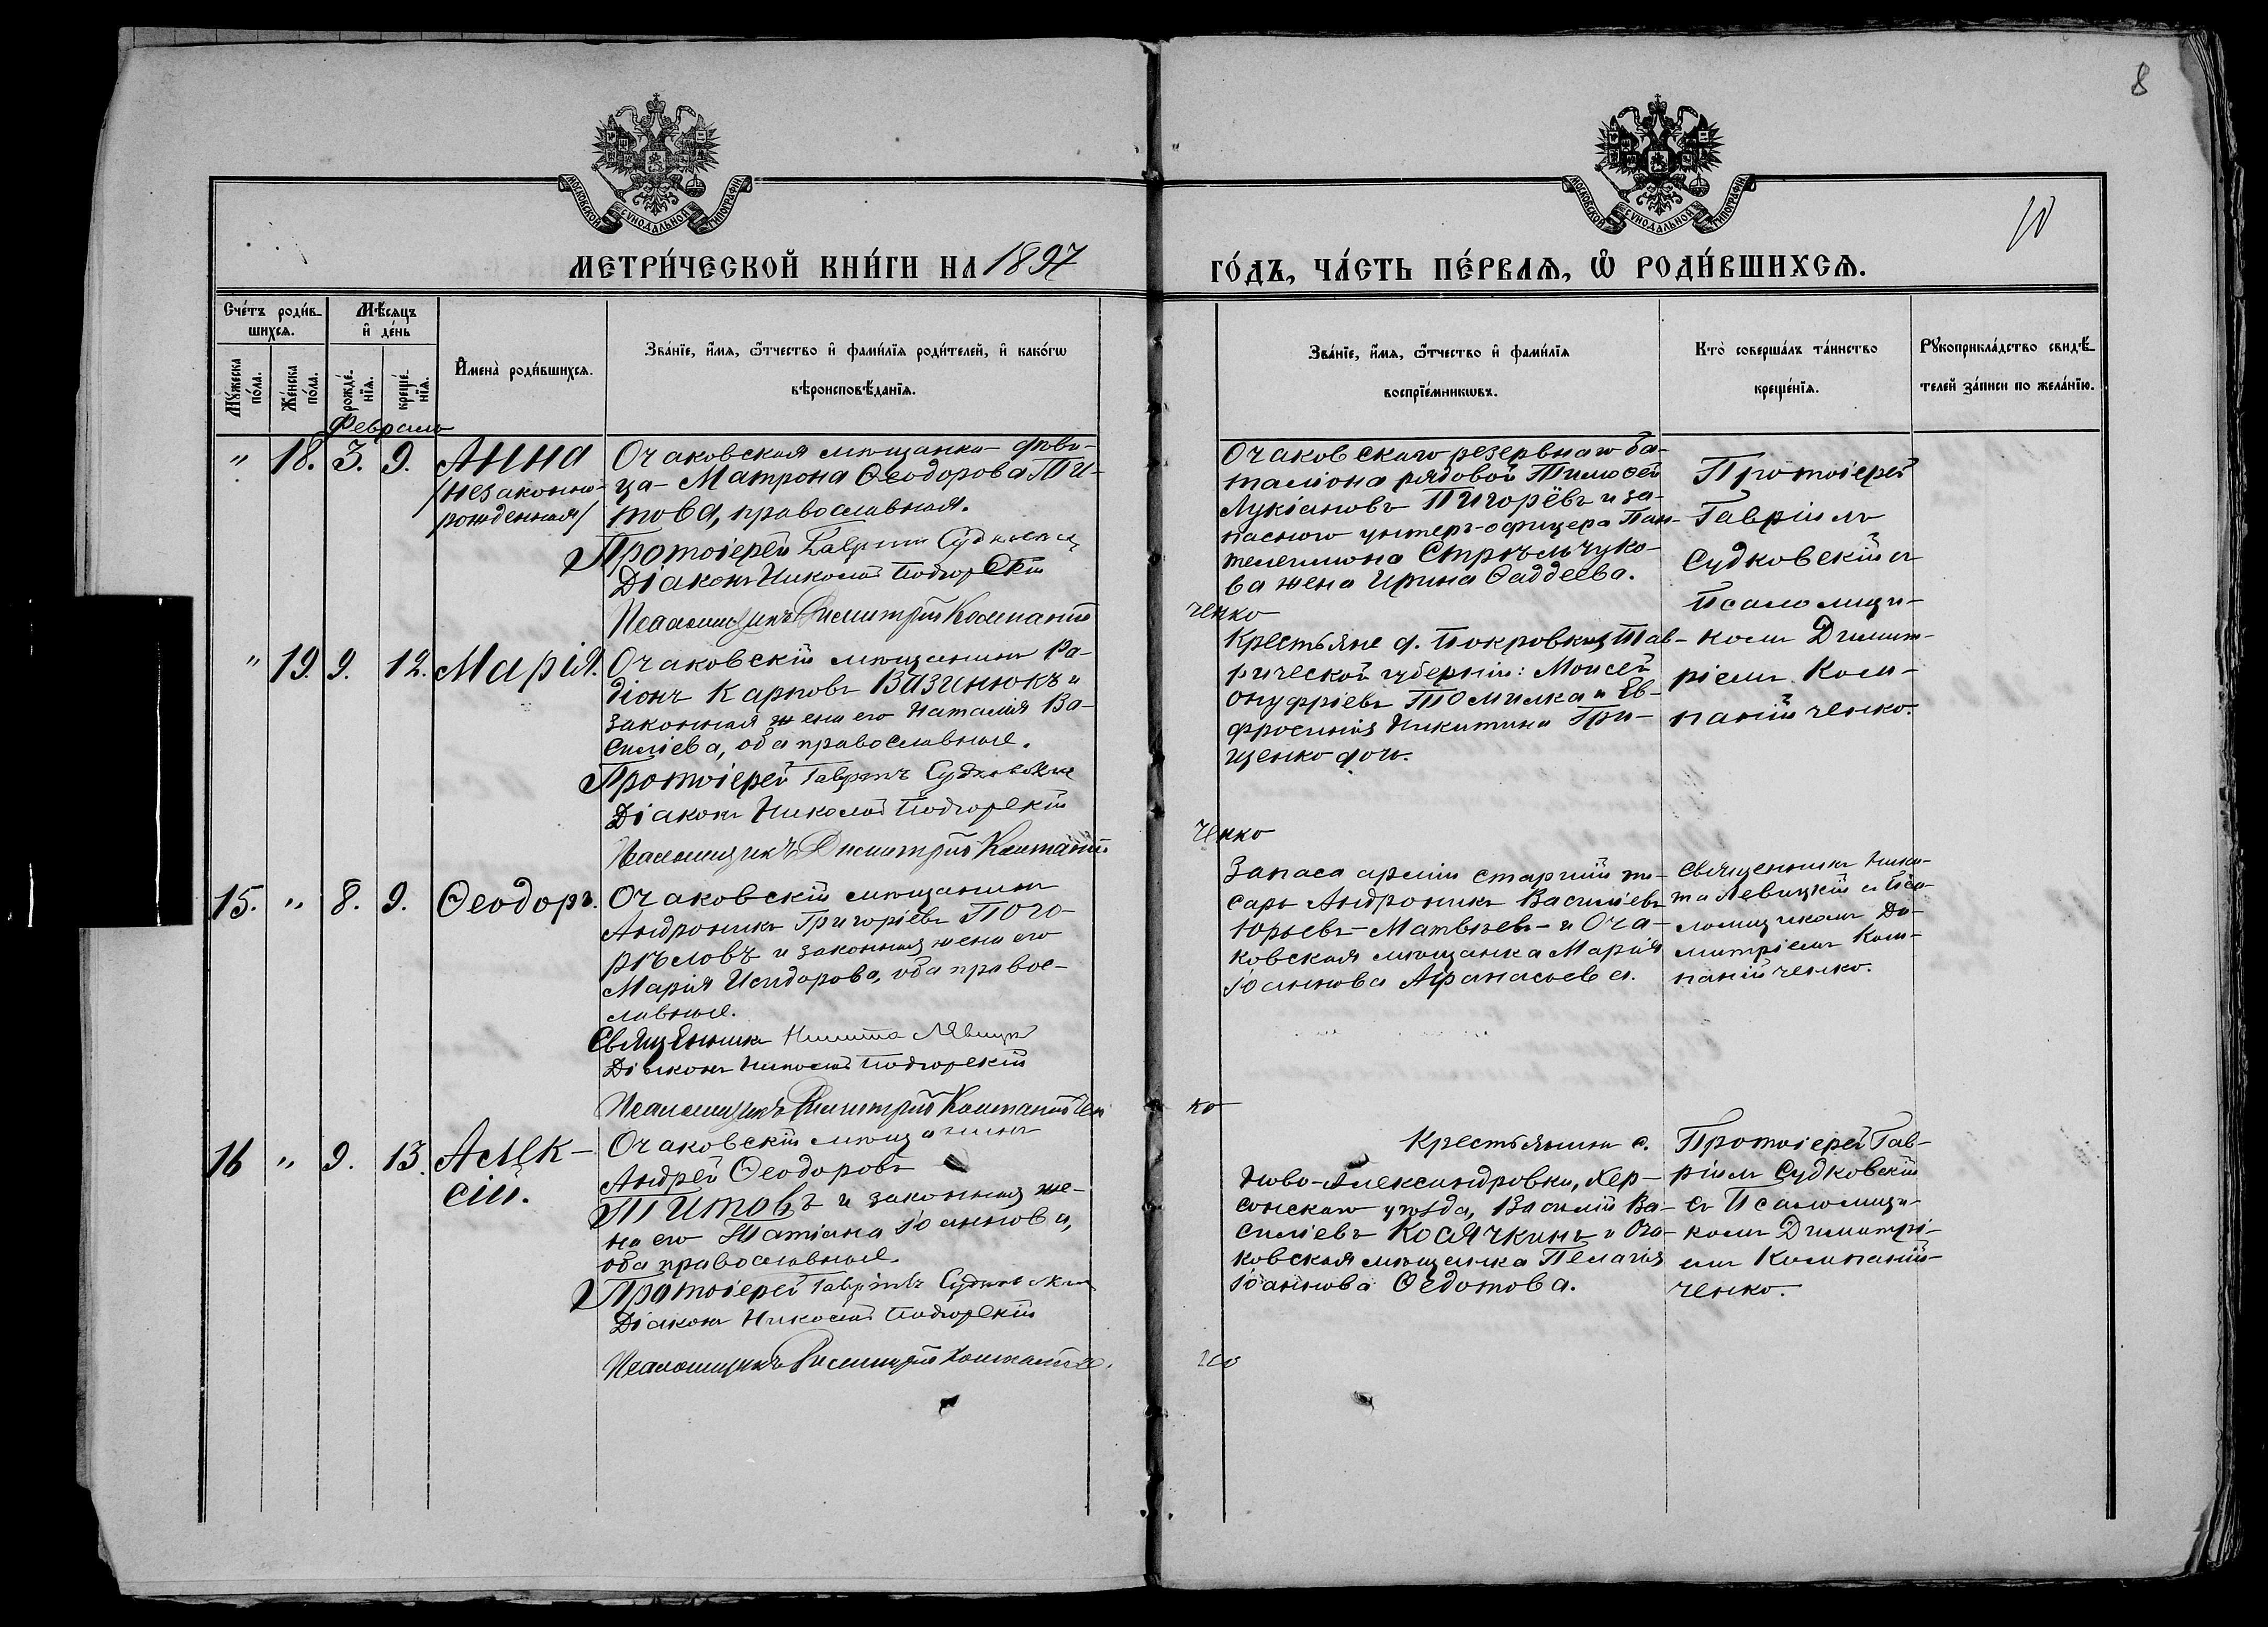 8
10
МОСКОВСКОЙ СѴНОДАЛЬНОЙ ТИПОГРАФІИ
МОСКОВСКОЙ СѴНОДАЛЬНОЙ ТИПОГРАФІИ
МЕТРИ́ЧЕСКОЙ КНИ́ГИ НА 1897
ГО́ДЪ, ЧА́СТЬ ПЕ́РВАѦ, Ѽ РОДИ́ВШИХСѦ.
Сче́тъ роди́в-
шихсѧ.
Мѣ́сѧцъ
и҆ де́нь
Мꙋ́жеска
по́ла.
Же́нска
по́ла.
рожде́-
нїѧ.
креще́-
нїѧ.
И҆мена̀ роди́вшихсѧ.
Зва́нїе, и҆́мѧ, ѻ҆́тчество и҆ фами́лїѧ роди́телей, и҆ како́гѡ
вѣроисповѣ́данїѧ.
Зва́нїе, и҆́мѧ, ѻ҆́тчество и҆ фами́лїѧ
воспрїе́мникѡвъ.
Кто̀ соверша́лъ та́инство
креще́нїѧ.
Рꙋкоприкла́дство свидѣ́-
телей за́писи по жела́нїю.
Февраль
" 18. 3. 9. Анна
/незаконно-
рожденная/
Очаковская мѣщанка вдови-
ца Матрона Ѳеодорова Ти-
това, православная.
Протоіерей Гавріилъ Судковскій
Діаконъ Николай Подгорскій
Псаломщикъ Димитрій Компаній
ченко
Очаковскаго резервнаго ба-
таліона рядовой Тимоѳей
Лукіановъ Пигорёвъ и за-
паснаго унтеръ-офицера Пан-
телеимона Стрѣльчуко-
ва жена Ирина Ѳаддеева.
Протоіерей
Гавріилъ
Судковскій съ
Псаломщи-
комъ Димит-
ріемъ Ком-
панійченко.
" 19. 9. 12. Марія.
Очаковскій мѣщанинъ Ра-
діонъ Карповъ Вазинюкъ и
законная жена его Наталія Ва-
силіева, оба православные.
Протоіерей Гавріилъ Судковскій
Діаконъ Николай Подгорскій
Псаломщикъ Димитрій Компаній
ченко
Крестьяне д. Покровки, Тав-
рической губерніи: Моисей
Онуфріевъ Томилка и Ев-
фросинія Никитина Гри-
щенко дочь.
15. " 8. 9. Ѳеодоръ.
Очаковскій мѣщанинъ
Андроникъ Григоріевъ Пого-
рѣловъ и законная жена его
Марія Исидорова, оба правос-
лавные.
Священникъ Никита Левицкій
Діаконъ Николай Подгорскій
Псаломщикъ Димитрій Компанійчен
ко
Запаса арміи старшій пи-
сарь Андроникъ Василіевъ
Юрьевъ-Матвѣевъ и Оча-
ковская мѣщанка Марія
Іоаннова Аѳанасьева.
Священникъ Ники-
та Левицкій съ Пса-
ломщикомъ Ди-
митріемъ Ком-
панійченко.
16 " 9. 13. Алек-
сій.
Очаковскій мѣщанинъ
Андрей Ѳеодоровъ
Титовъ и законная же-
на его Татіана Іоаннова,
оба православные.
Протоіерей Гавріилъ Судковскій
Діаконъ Николай Подгорскій
Псаломщикъ Димитрій Компанійче
нко
Крестьянинъ с.
Ново-Александровки, Хер-
сонскаго уѣзда, Василій Ва-
силіевъ Косячкинъ и Оча-
ковская мѣщанка Пелагія
Іоаннова Ѳедотова.
Протоіерей Гав-
ріилъ Судковскій
съ Псаломщи-
комъ Димитрі-
емъ Компаній-
ченко.